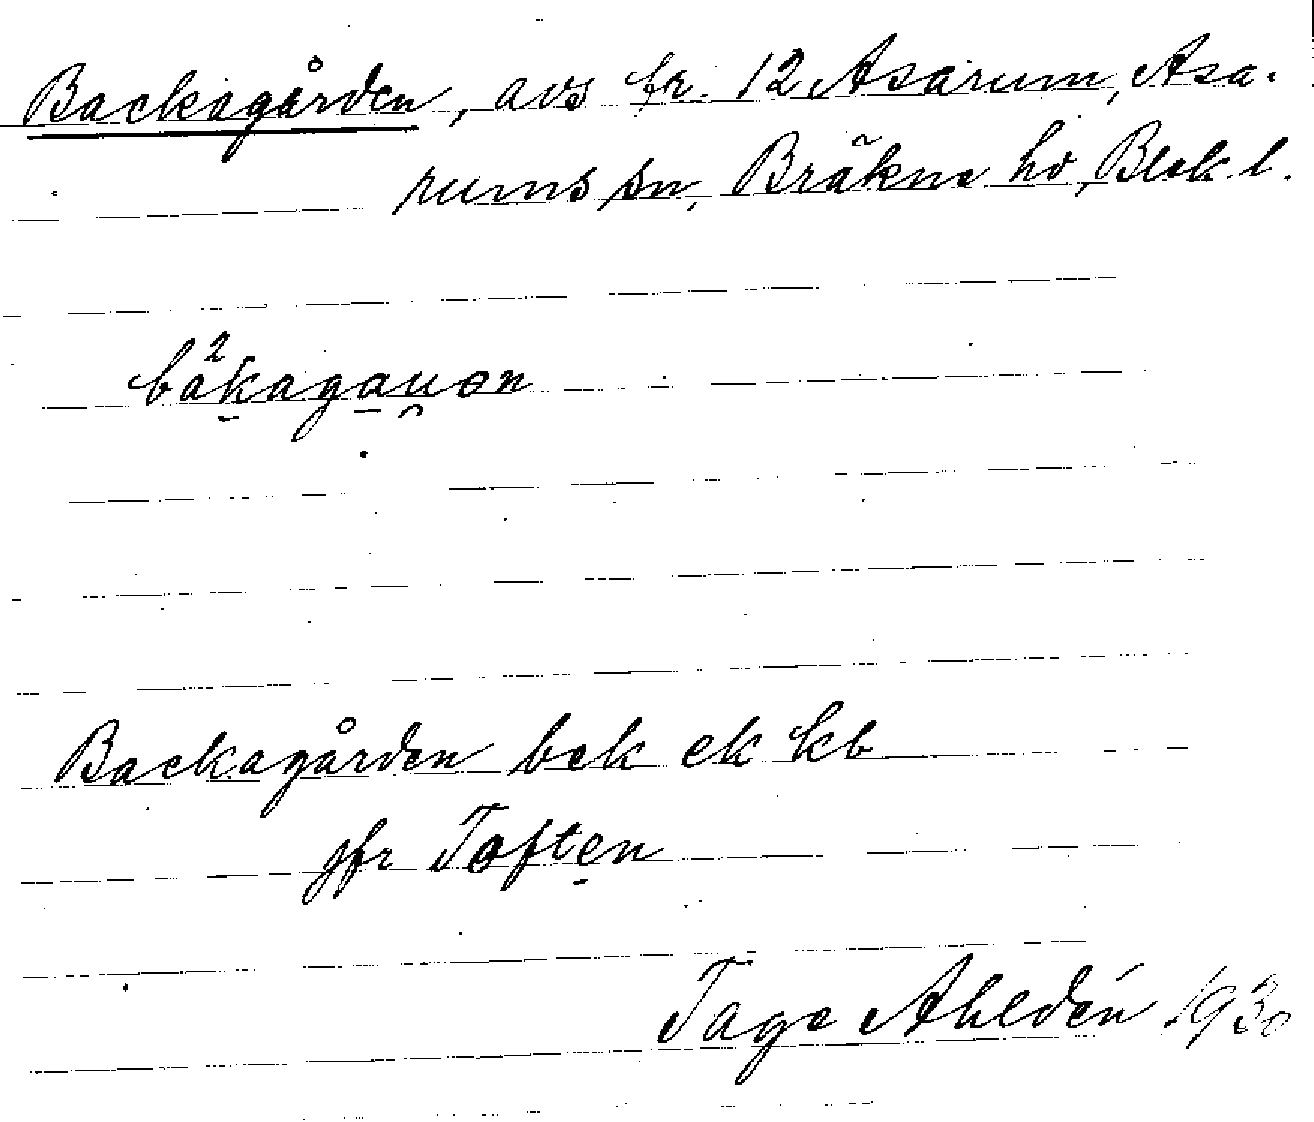 Backagården, avs fr. 12 Asarum, Asa-
rums sn, Bräkne hd, Blek. l.
bà²kagau̯ɘn
Backagården bek ek kb
jfr Toften
Tage Ahldén 1930